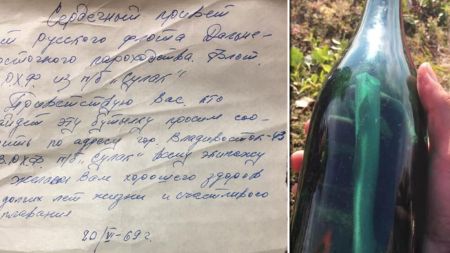 Сердечный привет
т Русского флота Дальне-
восточного пароходства. Влад.
ОХФ из п/б "Сулак".
Приветствую Вас, кто
айдет эту бутылку просим соо-
ить по адресу гор. Владивосток-43
ВОХФ п/б "Сулак" всему экипажу
желаем Вам хорошего здоров
долгих лет жизни и счастливого
плавания
20/VI-69г.